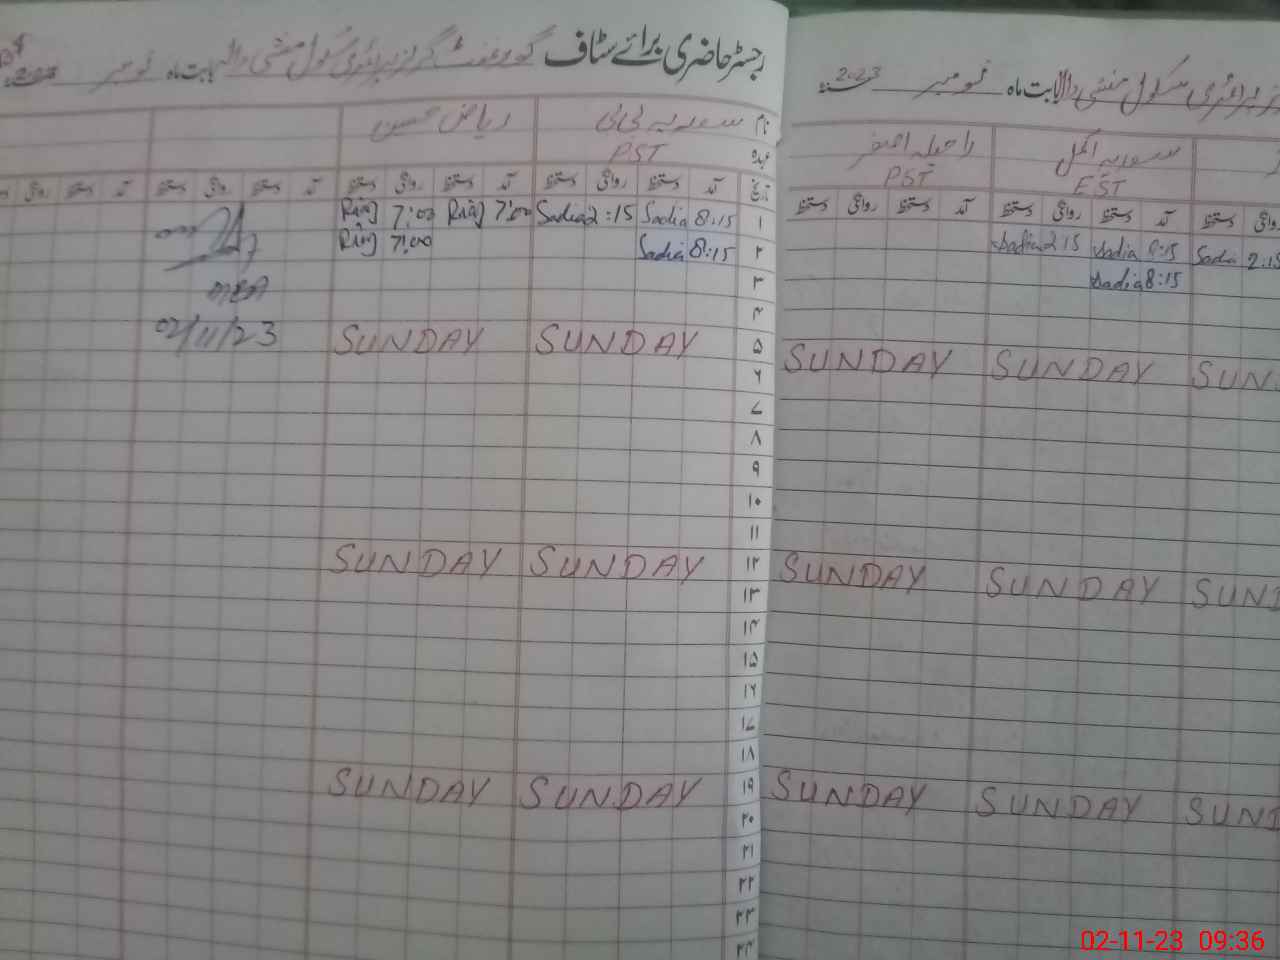 رجسٹر حاضری برائے سٹاف گورنمنٹ گرلز پرائمری سکول منشی والا بابت ماہ نومبر 2023
نام سعدیہ بی بی ریاض حسین
عہدہ PST
تاریخ آمد دستخط روانگی دستخط آمد دستخط روانگی دستخط آمد دستخط روانگی دستخط آمد دستخط روانگی
۱ 8:15 Sadia 2:15 Sadia 7:00 Riaz 7:00 Riaz
۲ 8:15 Sadia 7:00 Riaz
۳ MEA
۴
۵ SUNDAY SUNDAY 02/11/23
۶
۷
۸
۹
۱۰
۱۱
۱۲ SUNDAY SUNDAY
۱۳
۱۴
۱۵
۱۶
۱۷
۱۸
۱۹ SUNDAY SUNDAY
۲۰
۲۱
۲۲
۲۳
۲۴
پرائمری سکول منشی والا بابت ماہ نومبر 2023
سعدیہ اکمل راحیلہ اصغر
EST PST
روانگی دستخط آمد دستخط روانگی دستخط آمد دستخط روانگی دستخط
2:15 Sadia 8:15 Sadia 2:15 Sadia
8:15 Sadia
SUN SUNDAY SUNDAY
SUND SUNDAY SUNDAY
SUN SUNDAY SUNDAY
02-11-23 09:36